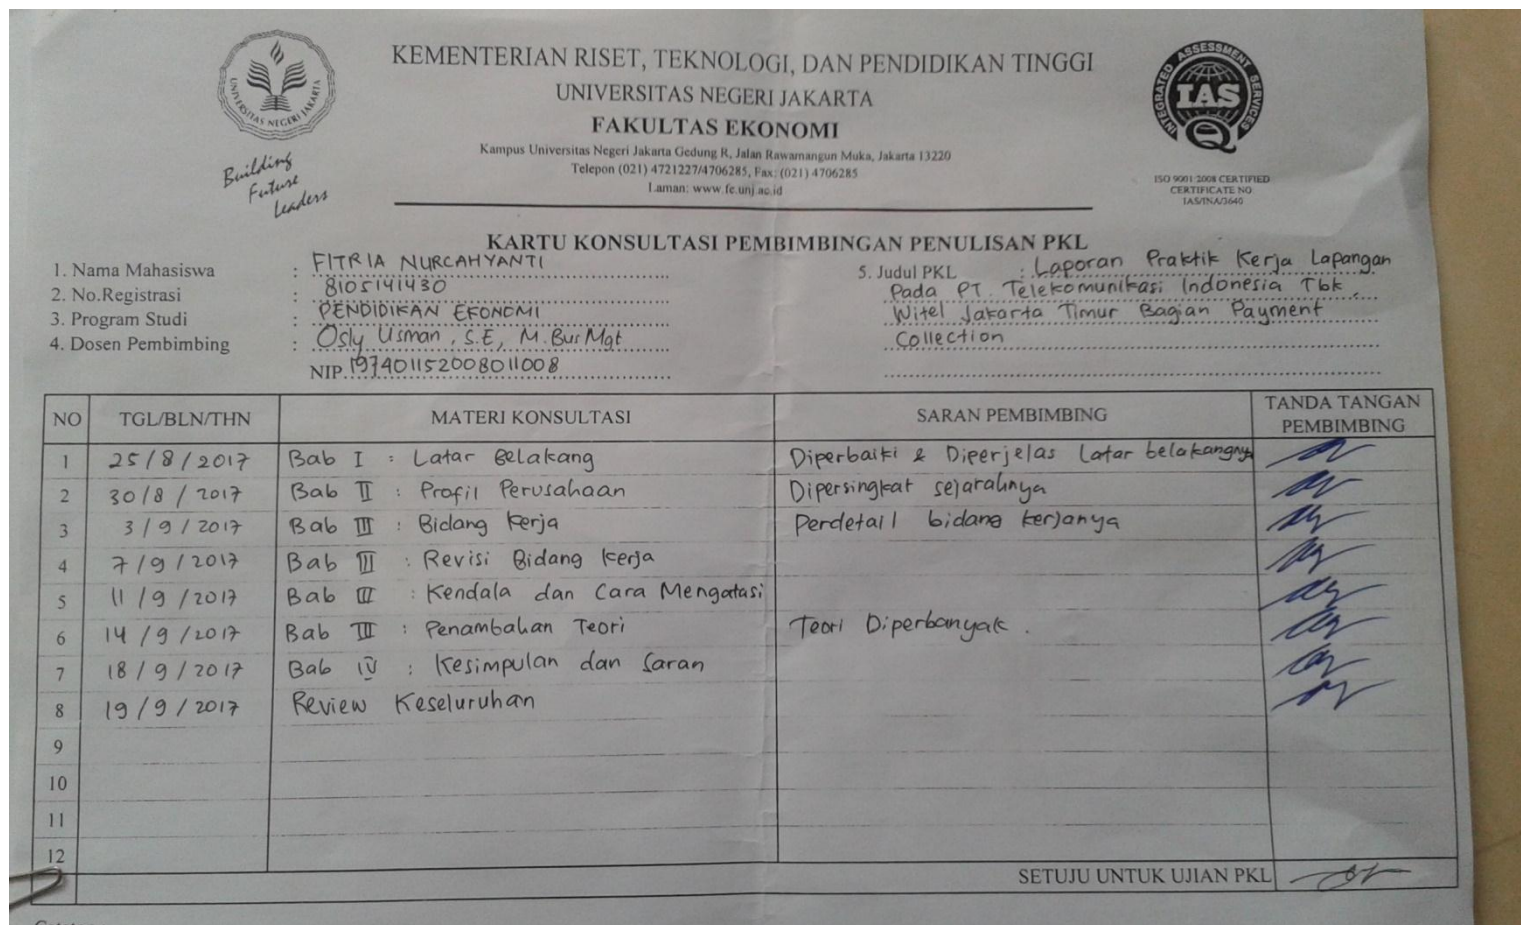 KEMENTERIAN RISET, TEKNOLOGI, DAN PENDIDIKAN TINGGI
UNIVERSITAS NEGERI JAKARTA
FAKULTAS EKONOMI
Kampus Universitas Negeri Jakarta Gedung R, Jalan Rawamangun Muka, Jakarta 13220
Telepon (021) 4721227/4706285, Fax: (021) 4706285
Laman: www.fe.unj.ac.id
UNIVERSITAS NEGERI JAKARTA
Building
Future
Leaders
INTEGRATED ASSESSMENT SERVICES
IAS
ISO 9001:2008 CERTIFIED
CERTIFICATE NO
IAS/INA/3640
KARTU KONSULTASI PEMBIMBINGAN PENULISAN PKL
1. Nama Mahasiswa : FITRIA NURCAHYANTI
2. No.Registrasi : 8105141430
3. Program Studi : PENDIDIKAN EKONOMI
4. Dosen Pembimbing : Osly Usman, S.E, M.Bus Mgt
NIP. 197401152008011008
5. Judul PKL : Laporan Praktik Kerja Lapangan
Pada PT. Telekomunikasi Indonesia Tbk,
Witel Jakarta Timur Bagian Payment
Collection
NO TGL/BLN/THN MATERI KONSULTASI SARAN PEMBIMBING TANDA TANGAN PEMBIMBING
1 25/8/2017 Bab I : Latar Belakang Diperbaiki & Diperjelas Latar belakangnya
2 30/8/2017 Bab II : Profil Perusahaan Dipersingkat sejarahnya
3 3/9/2017 Bab III : Bidang Kerja Perdetail bidang kerjanya
4 7/9/2017 Bab III : Revisi Bidang Kerja
5 11/9/2017 Bab III : Kendala dan Cara Mengatasi
6 14/9/2017 Bab III : Penambahan Teori Teori Diperbanyak.
7 18/9/2017 Bab IV : Kesimpulan dan Saran
8 19/9/2017 Review Keseluruhan
9
10
11
12
SETUJU UNTUK UJIAN PKL